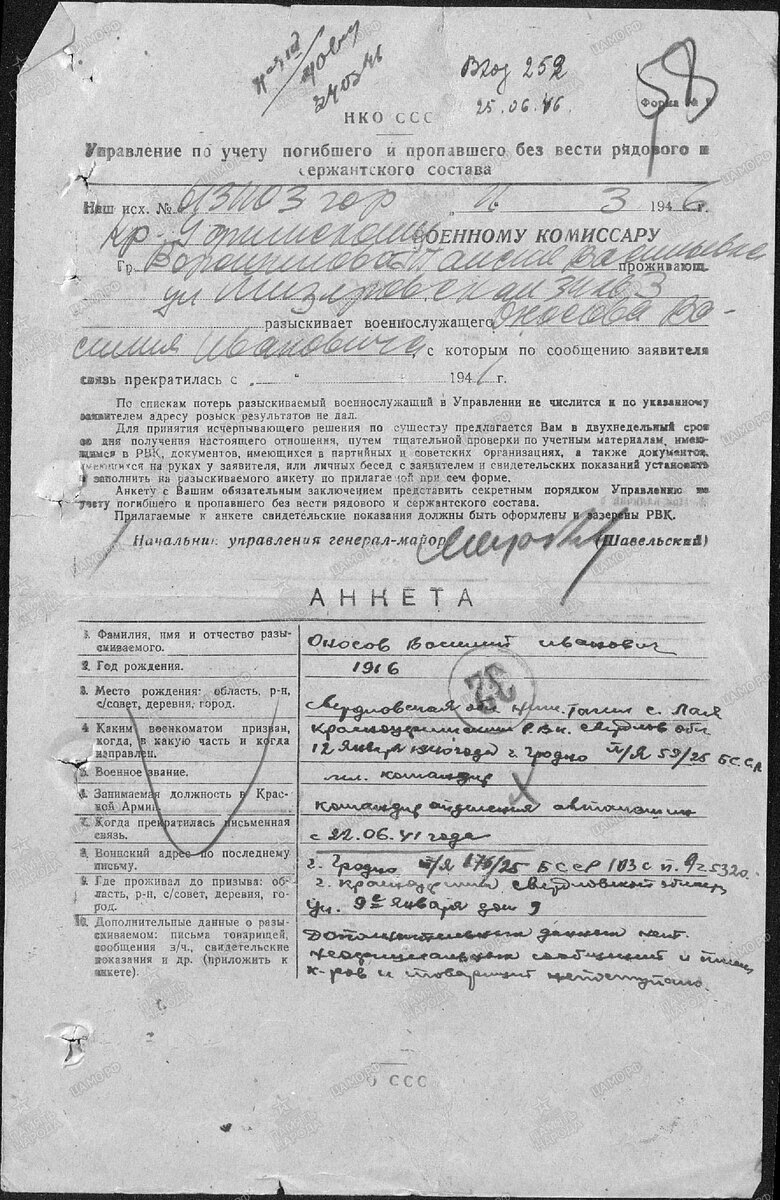 Вход 252
25.06.46.
58
Форма №
НКО ССС
Управление по учету погибшего и пропавшего без вести рядового и
сержантского состава
Наш исх. № 3 1946 г.
Кр-Уфимскому ВОЕННОМУ КОМИССАРУ
Гр. Васильевна проживающ.
ул
разыскивает военнослужащего Оносова Ва-
силия Ивановича, с которым по сообщению заявителя
связь прекратилась с „ “ 1941 г.
По спискам потерь разыскиваемый военнослужащий в Управлении не числится и по указанному
заявителем адресу розыск результатов не дал.
Для принятия исчерпывающего решения по существу предлагается Вам в двухнедельный срок
со дня получения настоящего отношения, путем тщательной проверки по учетным материалам, имею-
щимся в РВК, документов, имеющихся в партийных и советских организациях, а также документов,
имеющихся на руках у заявителя, или личных бесед с заявителем и свидетельских показаний установить
и заполнить на разыскиваемого анкету по прилагаемой при сем форме.
Анкету с Вашим обязательным заключением представить секретным порядком Управлению по
учету погибшего и пропавшего без вести рядового и сержантского состава.
Прилагаемые к анкете свидетельские показания должны быть оформлены и заверены РВК.
Начальник управления генерал-майор (Шавельский)
АНКЕТА
1. Фамилия, имя и отчество разы-
скиваемого.
Оносов Василий Иванович
2. Год рождения.
1916
3. Место рождения: область, р-н,
с/совет, деревня, город.
Свердловская обл Ниж. Тагил с. Лая
32
4. Каким военкоматом призван,
когда, в какую часть и когда
направлен.
Красноуфимским РВк. Свердлов обл
12 Января 1940 года г. Гродно П/Я 59/25 БССР
5. Военное звание.
мл. командир
6. Занимаемая должность в Крас-
ной Армии
командир отделения автомашин
7. Когда прекратилась письменная
связь.
с 22.06.41 года
8. Воинский адрес по последнему
письму.
г. Гродно П/Я 176/25 БССР
9. Где проживал до призыва: об-
ласть, р-н, с/совет, деревня, го-
род.
г. Красноуфимск Свердловской области
ул. 9е Января дом 9
10. Дополнительные данные о разы-
скиваемом: письма товарищей,
сообщения в/ч., свидетельские
показания и др. (приложить к
анкете).
Дополнительных данных нет.
неофициальных сообщений и писем
к-ров и товарищей не поступало.
О ССС